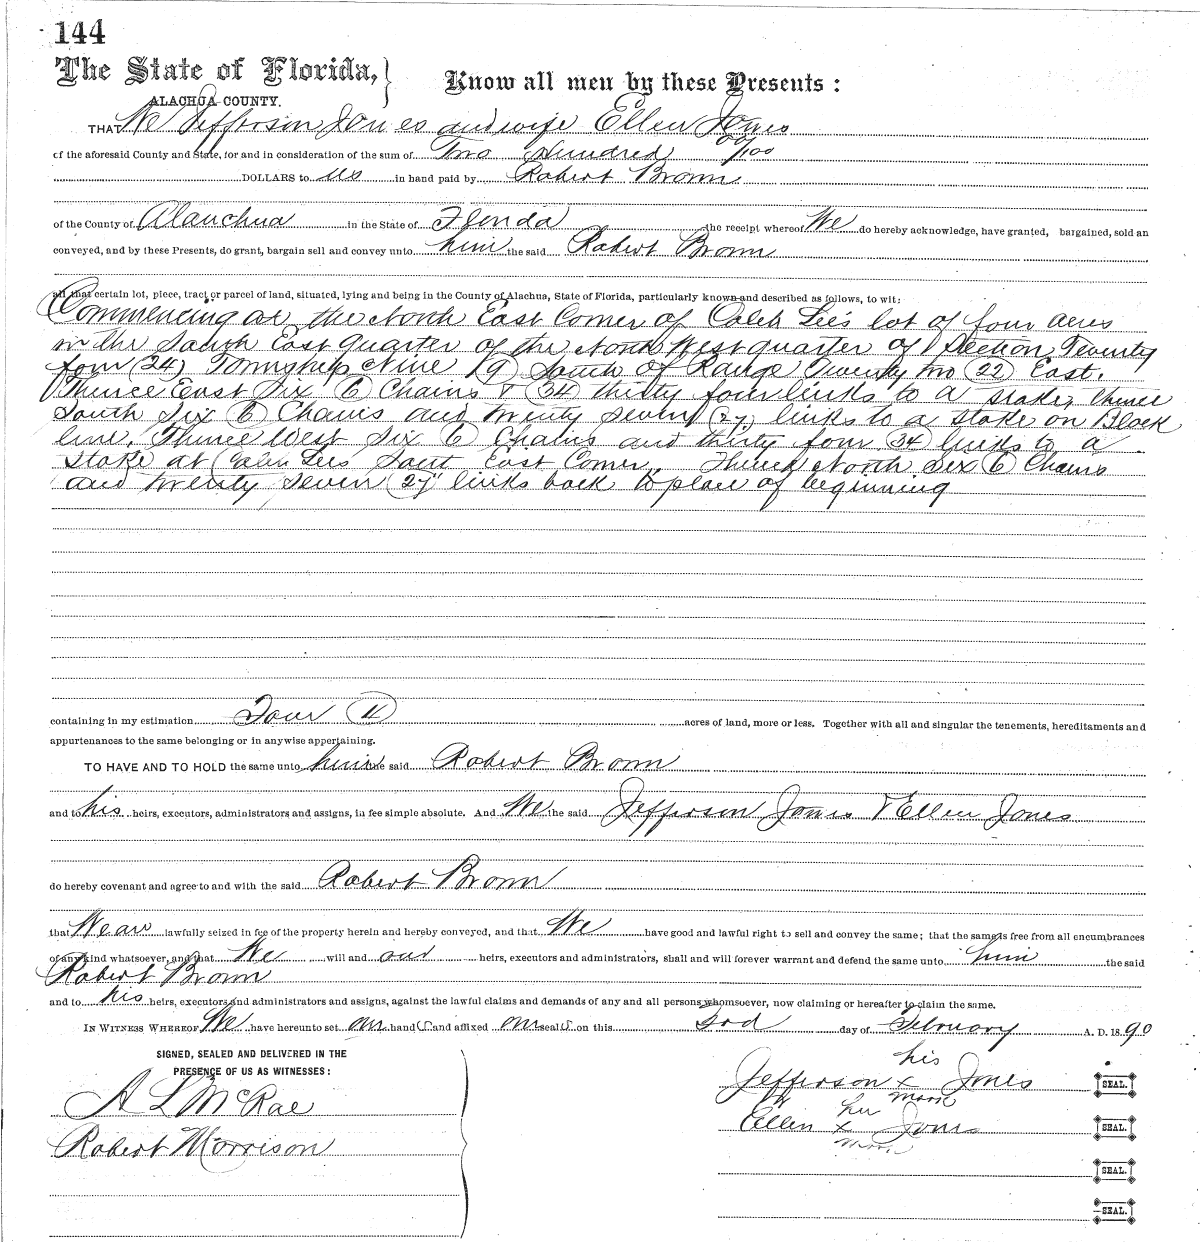 144
The State of Florida,
ALACHUA COUNTY.
Know all men by these Presents:
THAT We Jefferson Jones and wife Ellen Jones
of the aforesaid County and State, for and in consideration of the sum of Two Hundred 00/100
DOLLARS to us in hand paid by Robert Brown
of the County of Alauchua in the State of Florida the receipt whereof We do hereby acknowledge, have granted, bargained, sold an
conveyed, and by these Presents, do grant, bargain sell and convey unto him the said Robert Brown
all that certain lot, piece, tract or parcel of land, situated, lying and being in the County of Alachua, State of Florida, particularly known and described as follows, to wit:
Commencing at the North East Corner of Caleb Lee's lot of four acres
in the South East quarter of the North West quarter of Section Twenty
four (24) Township Nine (9) South of Range Twenty two (22) East.
Thence East Six (6) Chains & (34) thirty four links to a stake, thence
South Six (6) Chains and twenty seven (27) links to a stake on Block
line. Thence West Six (6) Chains and thirty four (34) links to a
Stake at Caleb Lees Sout East Corner. Thence North Six (6) Chains
and twenty seven (27) links back to place of beginning
containing in my estimation Four (4) acres of land, more or less. Together with all and singular the tenements, hereditaments and
appurtenances to the same belonging or in anywise appertaining.
TO HAVE AND TO HOLD the same unto him the said Robert Brown
and to his heirs, executors, administrators and assigns, in fee simple absolute. And We the said Jefferson Jones & Ellen Jones
do hereby covenant and agree to and with the said Robert Brown
that We are lawfully seized in fee of the property herein and hereby conveyed, and that We have good and lawful right to sell and convey the same; that the same is free from all encumbrances
of any kind whatsoever, and that We will and our heirs, executors and administrators, shall and will forever warrant and defend the same unto him the said
Robert Brown
and to his heirs, executors and administrators and assigns, against the lawful claims and demands of any and all persons whomsoever, now claiming or hereafter to claim the same.
IN WITNESS WHEREOF We have hereunto set our hands and affixed our seals on this 3rd day of February A. D. 1890
SIGNED, SEALED AND DELIVERED IN THE
PRESENCE OF US AS WITNESSES:
A L McRae
Robert Morrison
his
Jefferson x Jones SEAL.
mark
her
Ellen x Jones SEAL.
mark
SEAL.
SEAL.